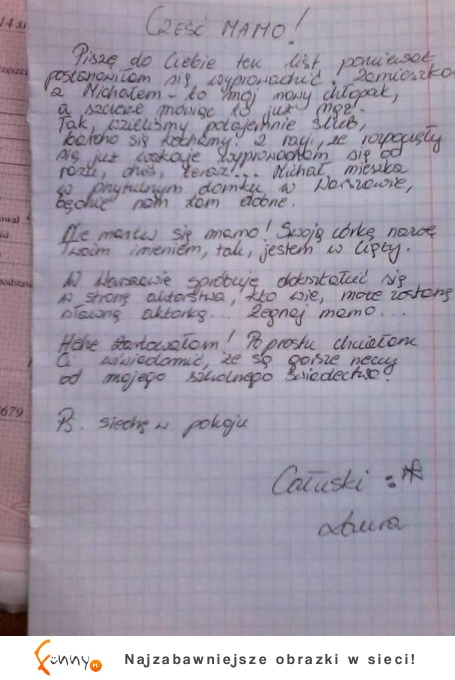 Cześć MAMO!
Piszę do Ciebie ten list ponieważ
postanowiłam się wyprowadzić. Zamieszkam
z Michałem - to mój nowy chłopak,
a szczerze mówiąc to już mąż.
Tak, wzieliśmy potajemnie ślub,
bardzo się kochamy! Z racji, że rozpoczęły
się już wakacje wyprowadzam się od
razu, dziś, teraz... Michał mieszka
w przytulnym domku w Warszawie,
będzie nam tam dobrze.
Nie martw się mamo! Swoją córkę nazwę
Twoim imieniem, tak, jestem w ciąży.
W Warszawie spróbuję dokształcić się
w stronę aktorstwa, kto wie, może zostanę
sławną aktorką... Żegnaj mamo...
Hehe żartowałam! Po prostu chciałam
Ci uświadomić, że są gorsze rzeczy
od mojego szkolnego świadectwa!
Ps. siedzę w pokoju
Całuski :*
Laura
14
679
funny.pl
Najzabawniejsze obrazki w sieci!